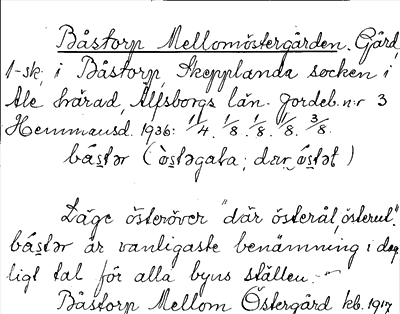 Båstorp Mellomöstergården. Gård,
1-sk, i Båstorp, Skepplanda socken i
Ale härad, Älfsborgs län. Jordeb. n:r 3
Hemmansd. 1936: 1/4. 1/8. 1/8. 1/8. 3/8.
bástər (östəgata; dər östət)
Läge österöver "där österål, österut".
bástər är vanligaste benämning i dag
ligt tal för alla byns ställen.
Båstorp Mellom Östergård kb. 1917